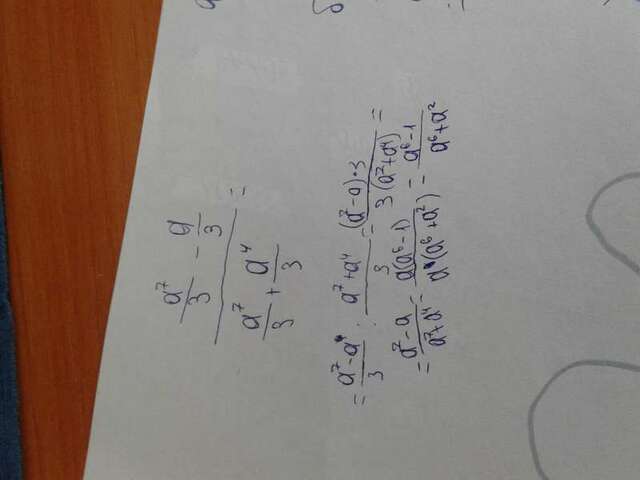 (a⁷/3 - a/3)/(a⁷/3 + a⁴/3) =
= (a⁷-a)/3 : (a⁷+a⁴)/3 = (a⁷-a)·3/3(a⁷+a⁴) =
= (a⁷-a)/(a⁷+a⁴) = a(a⁶-1)/a(a⁶+a²) = (a⁶-1)/(a⁶+a²)